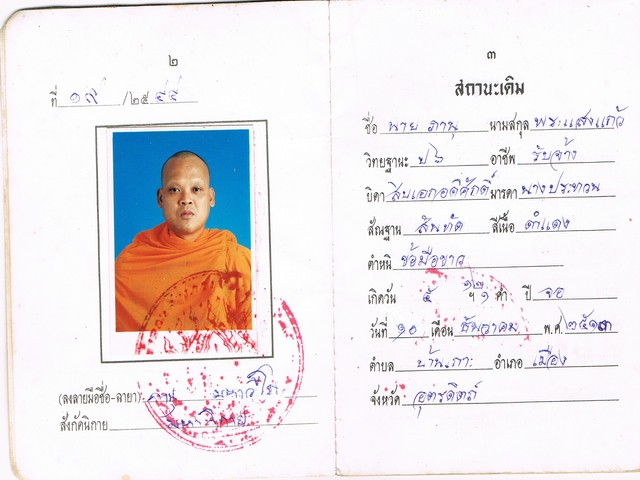 ๒
ที่ ๑๙ /๒๕๔๔
(ลงลายมือชื่อ-ฉายา) มหาวีโร
สังกัดนิกาย มหานิกาย
๓
สถานะเดิม
ชื่อ นาย ภานุ นามสกุล พระแสงแก้ว
วิทยฐานะ ป๖ อาชีพ รับจ้าง
บิดา สิบเอกอดิศักดิ์ มารดา นางประทวน
สัณฐาน สันทัด สีเนื้อ ดำแดง
ตำหนิ ข้อมือขวา
เกิดวัน ๕ ฯ ๑ ค่ำ ปี จอ
วันที่ ๑๐ เดือน ธันวาคม พ.ศ. ๒๕๑๓
ตำบล บ้านเกาะ อำเภอ เมือง
จังหวัด อุตรดิตถ์